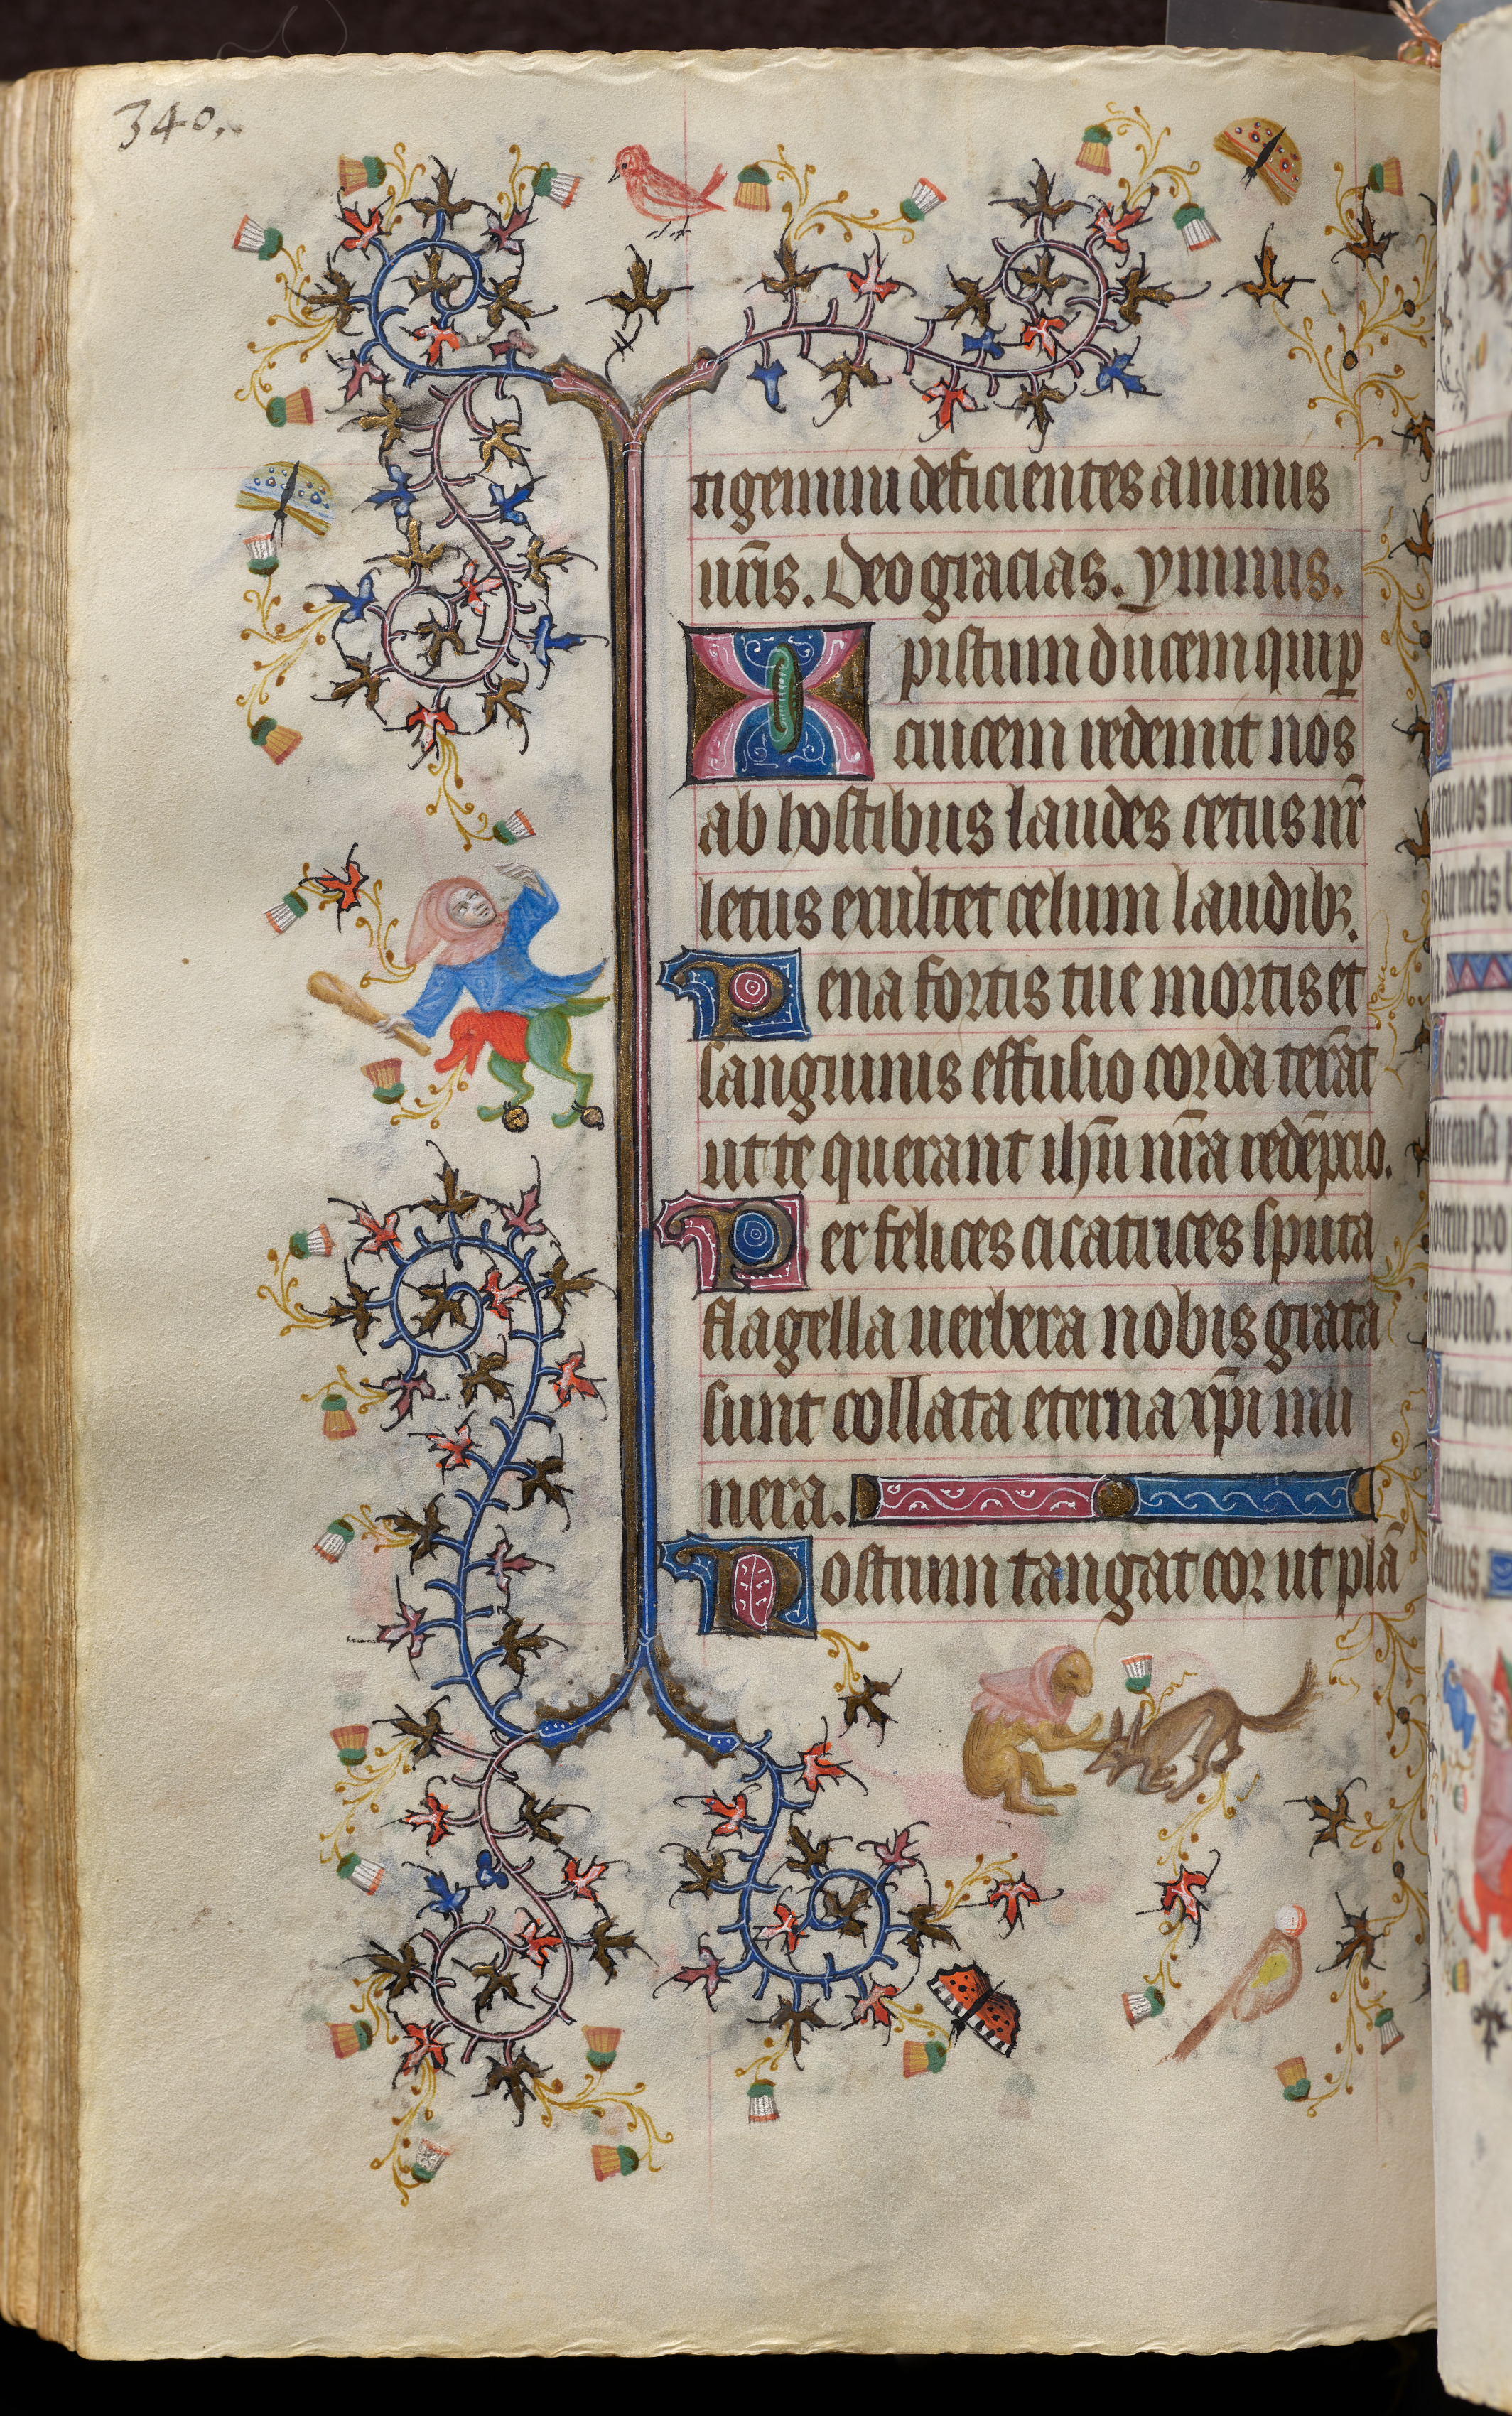 340.
tigemini deficientes animis
ur̃is. Deo gracias. ymnus.
Xpistum ducem qui ꝑ
crucem redemit nos
ab hostibus laudes cetus nr̃
letus exultet celum laudibꝫ.
Pena fortis tue mortis et
sanguinis effusio corda terãt
ut te querant ihũ nr̃a redẽpcio.
Per felices cicatrices sputa
flagella uerbera nobis grata
sunt collata eterna xp̃i mu
nera.
Nostrum tangat cor ut plã